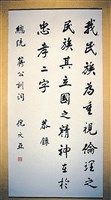 我民族為重視倫理之
民族其立國之精神在於
忠孝二字 恭錄
總統 蔣公訓詞 倪文亞